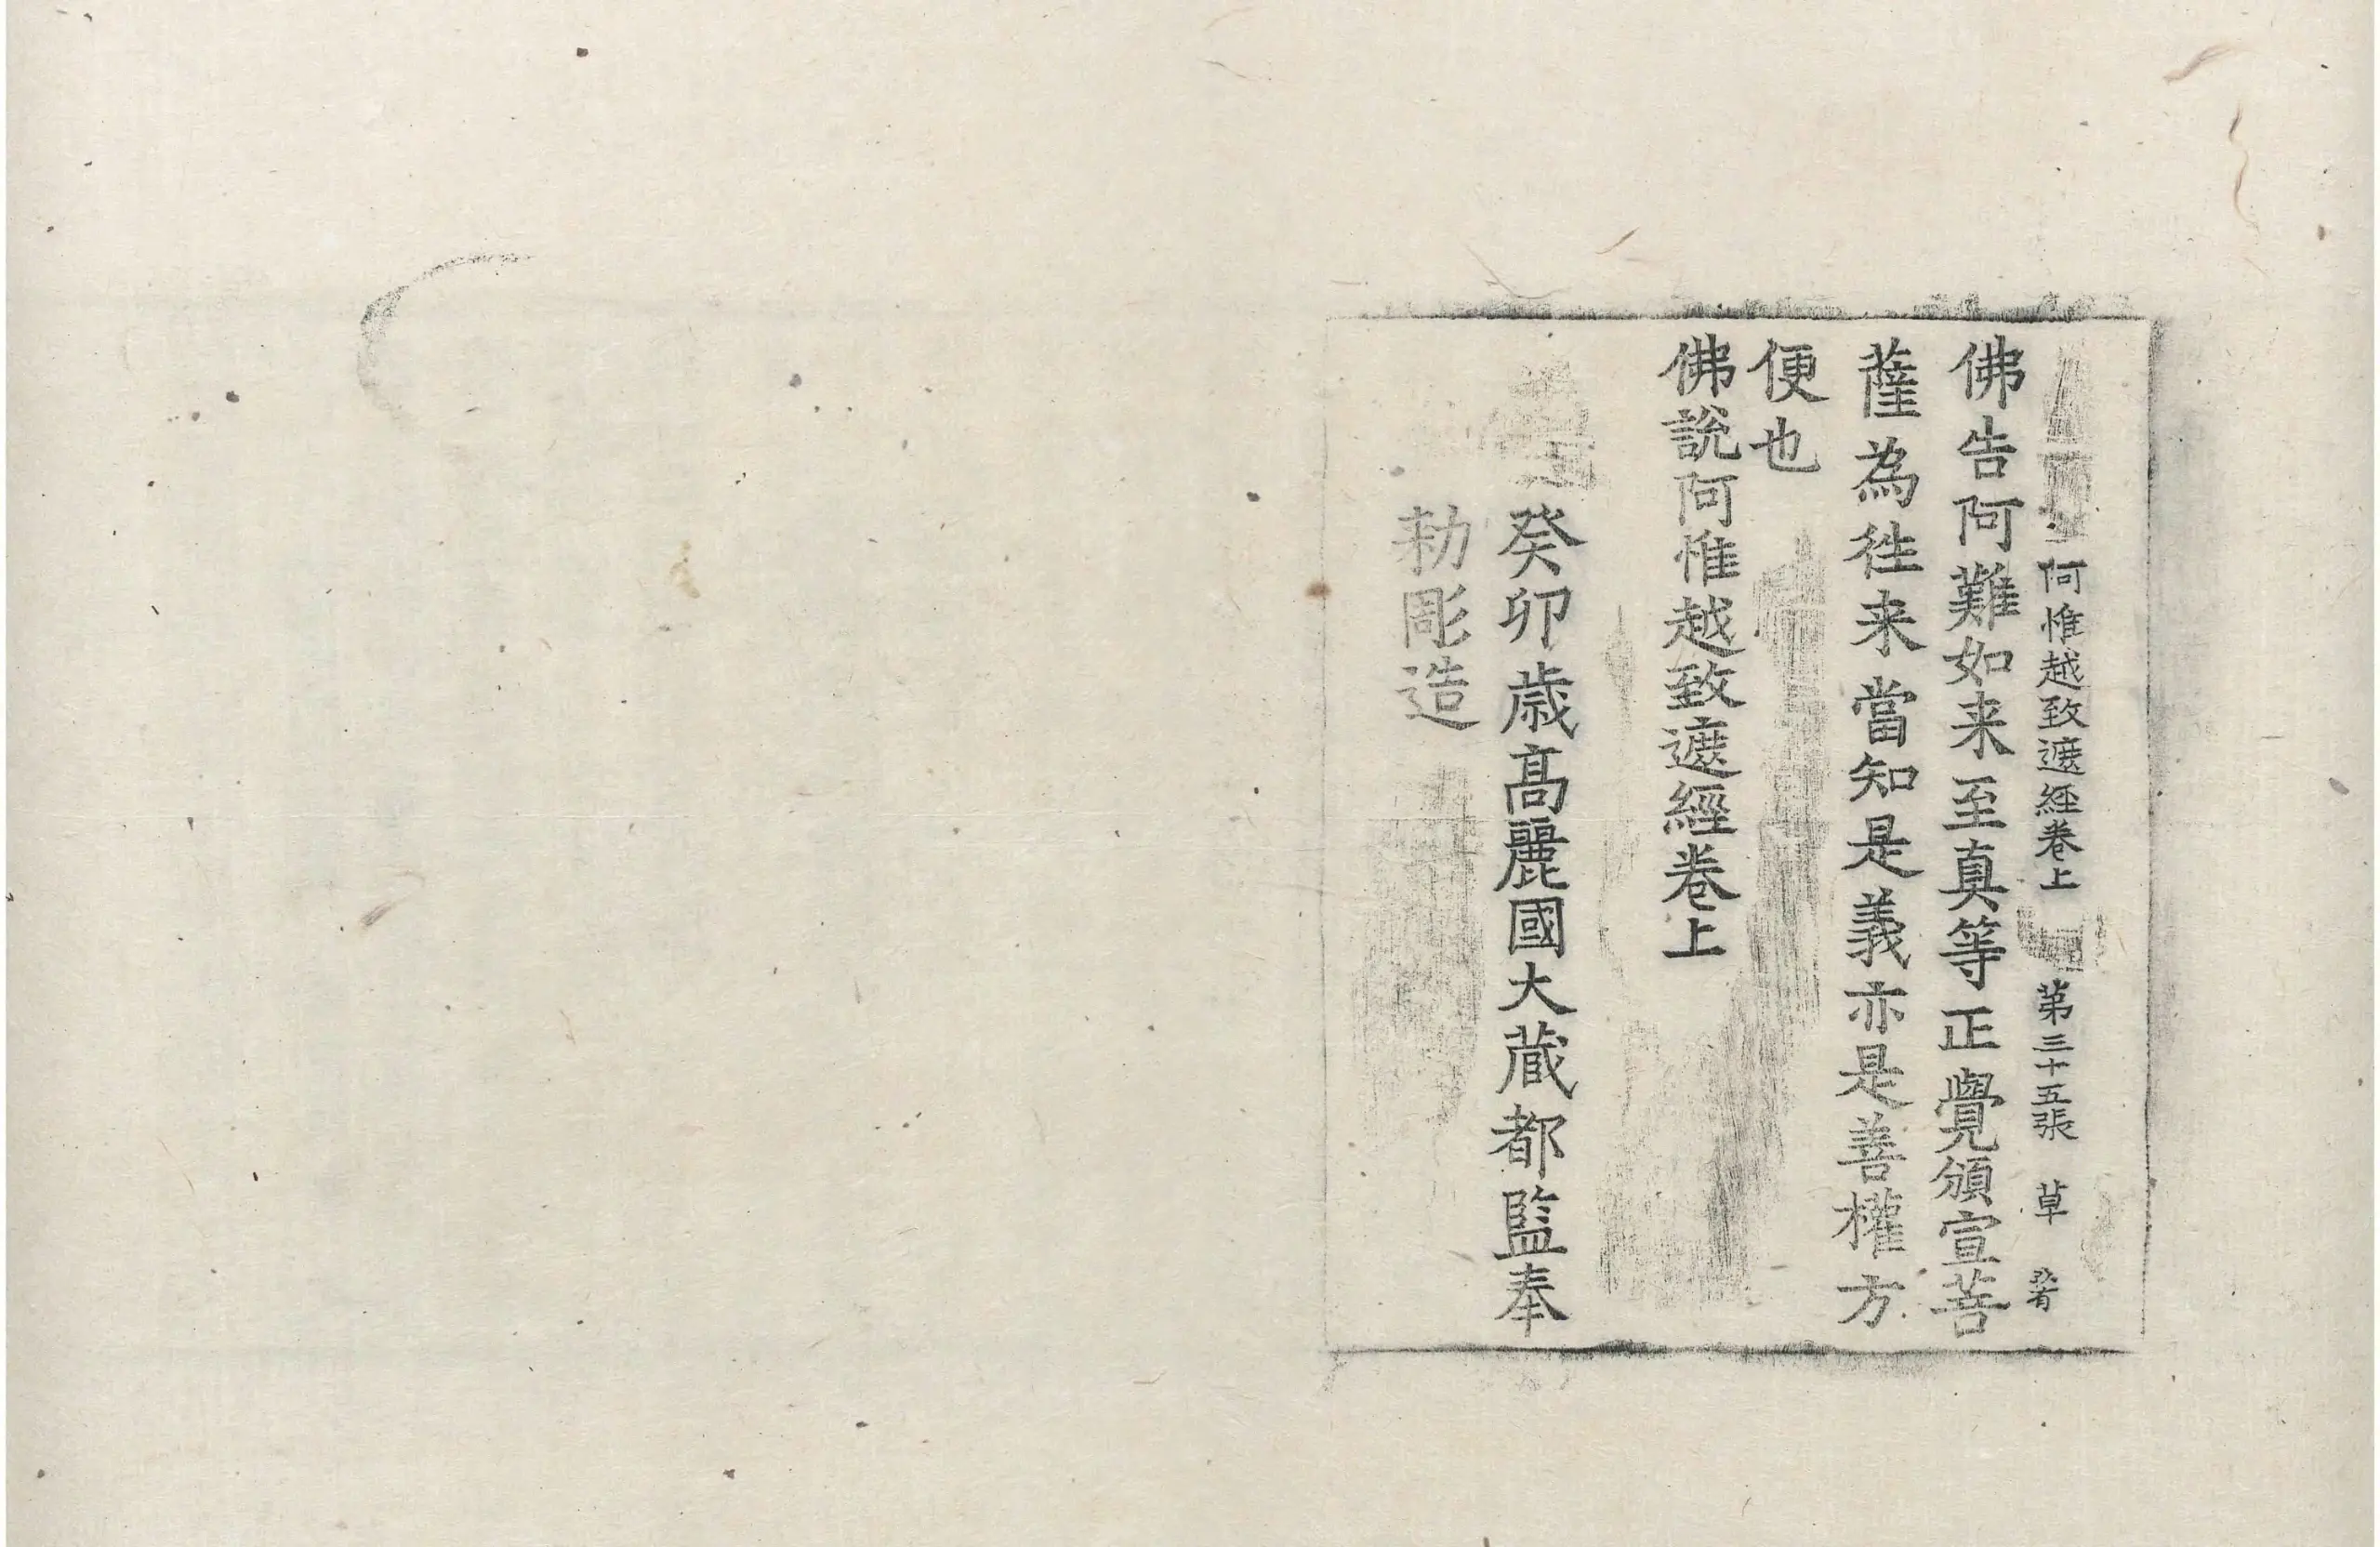 阿惟越致遮經卷上 第三十五張 草
佛告阿難如来至真等正覺頒宣菩
薩為徃来當知是義亦是善權方
便也
佛說阿惟越致遮經卷上
癸卯歳髙麗國大藏都監奉
勑彫造